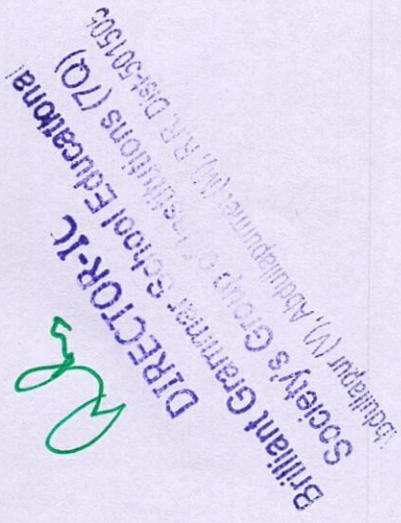 DIRECTOR-IC
Brilliant Grammar School Educational
Society's Group of Institutions (7Q)
Abdullapur (V), Abdullapurmet (M), R.R. Dist-501505